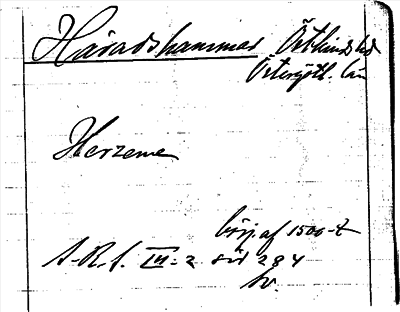 Häradshammar Östkinds hd
Östergötl. län
Herzeme
börj af 1500-t
S-R-S. III:2 sid 284